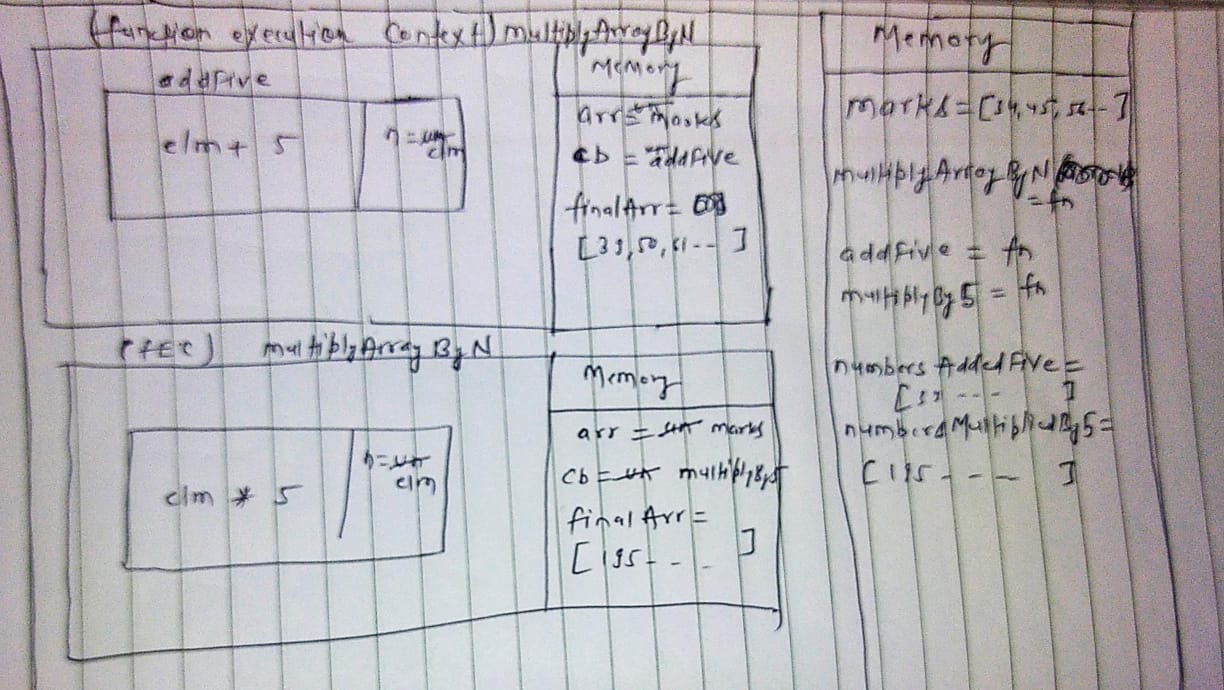 (function execution Context) multiplyArrayByN
addFive
elm + 5
n = elm
Memory
arr = marks
cb = addFive
finalArr =
[39, 50, 61 -- ]
(FEC) multiplyArrayByN
elm * 5
n = elm
Memory
arr = marks
cb = multiplyBy5
finalArr =
[195 - - - ]
Memory
marks = [34, 45, 56 -- ]
multiplyArrayByN
= fn
addFive = fn
multiplyBy5 = fn
numbersAddedFive =
[39 --- ]
numbersMultipliedBy5 =
[195 - - - ]